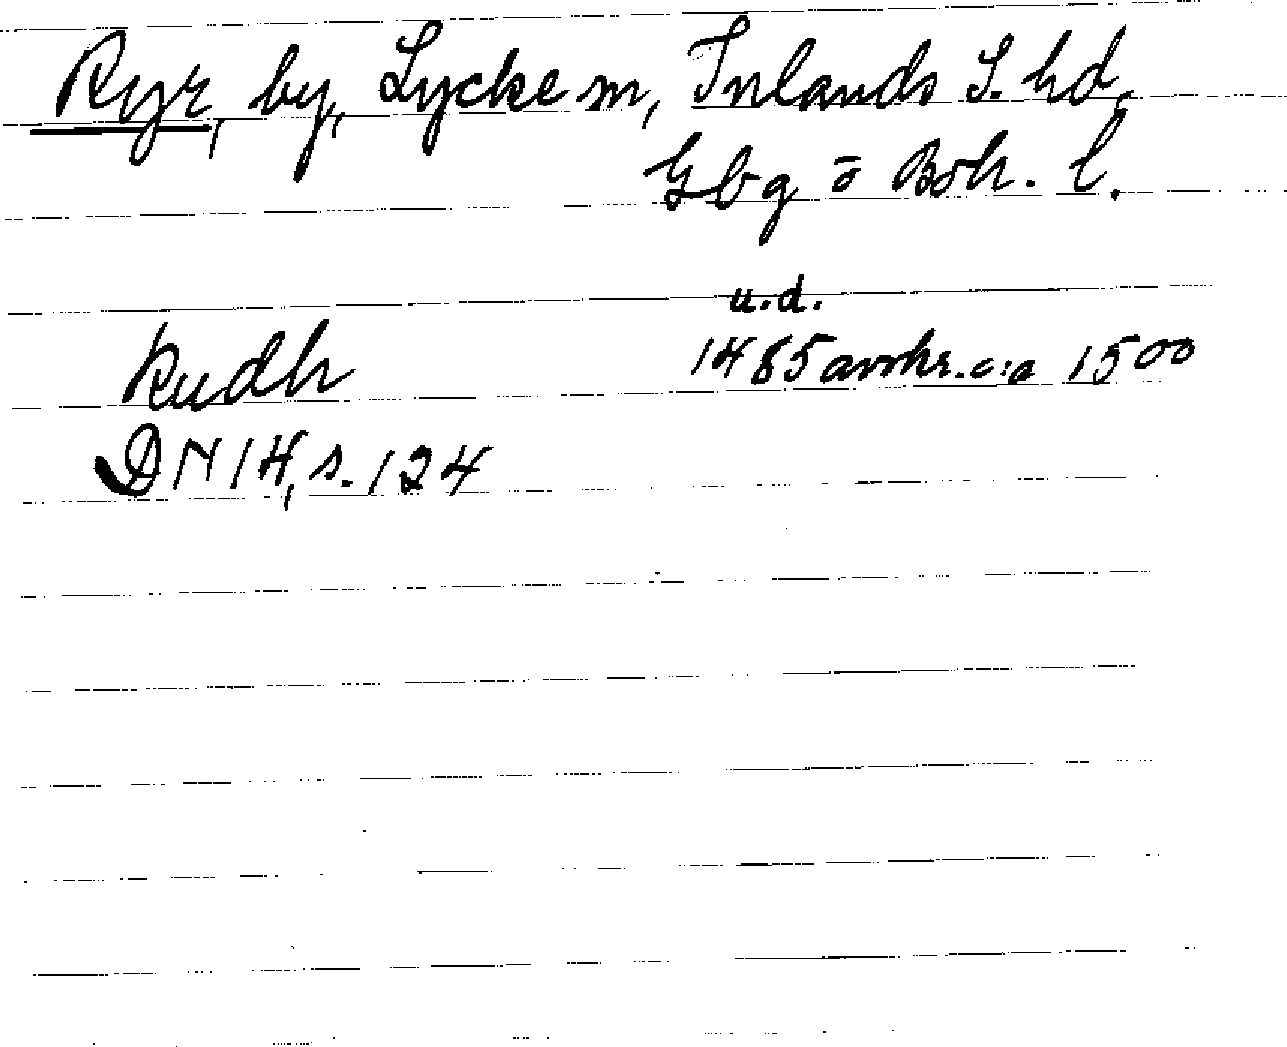 Ryr, by, Lycke sn, Inlands S. hd,
Gbg o Boh. l.
u.d.
Rudh 1485 avskr. c:a 1500
DN 14, s. 124